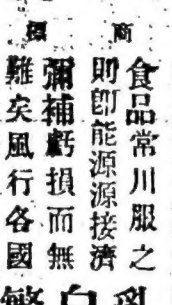 商標
食品常川服之
則卽能源源接濟
彌補虧損而無
難矣風行各國